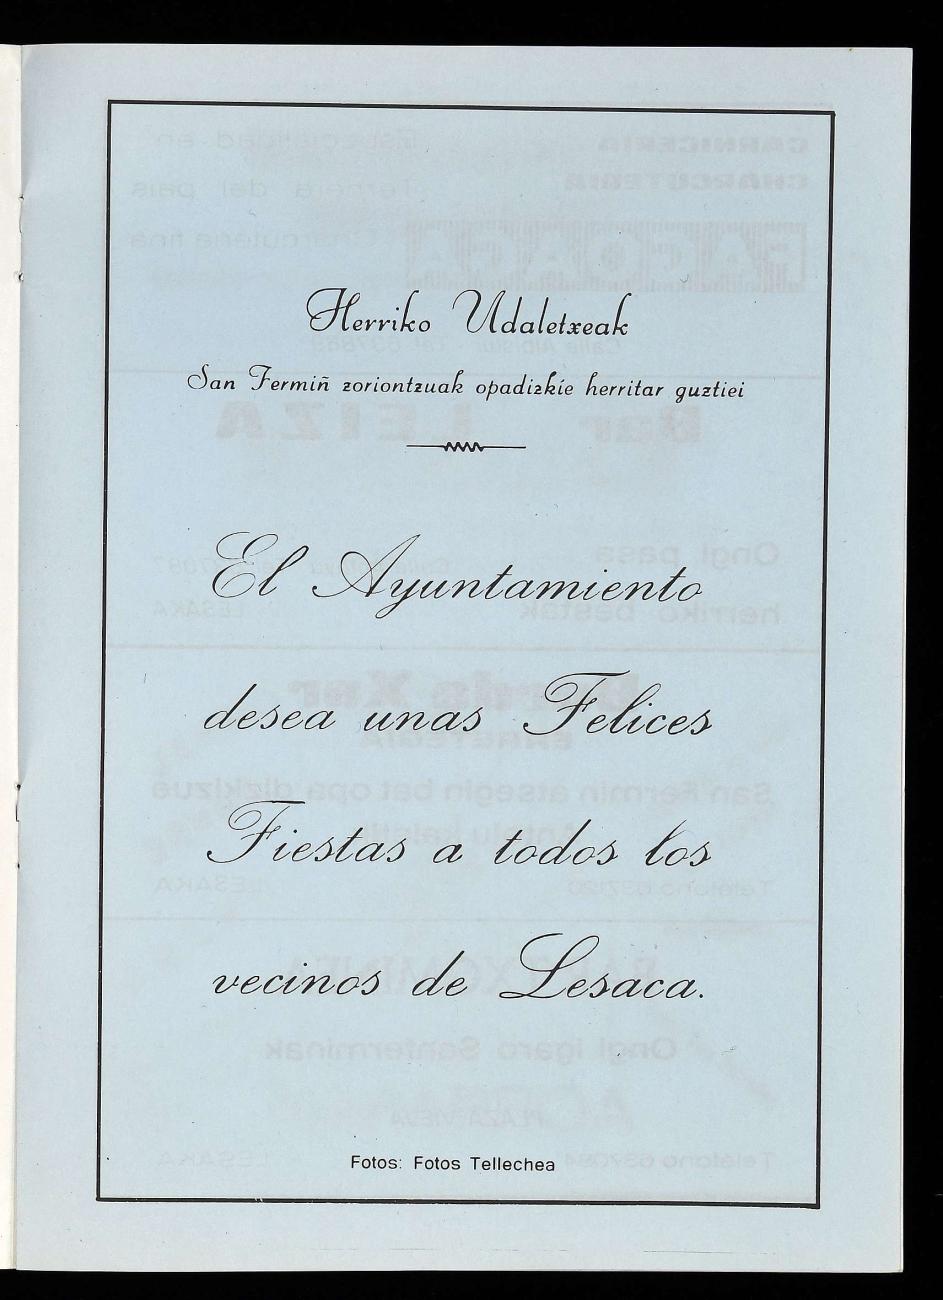 Herriko Udaletxeak
San Fermiñ zoriontzuak opadizkie herritar guztiei
El Ayuntamiento
desea unas Felices
Fiestas a todos los
vecinos de Lesaca.
Fotos: Fotos Tellechea